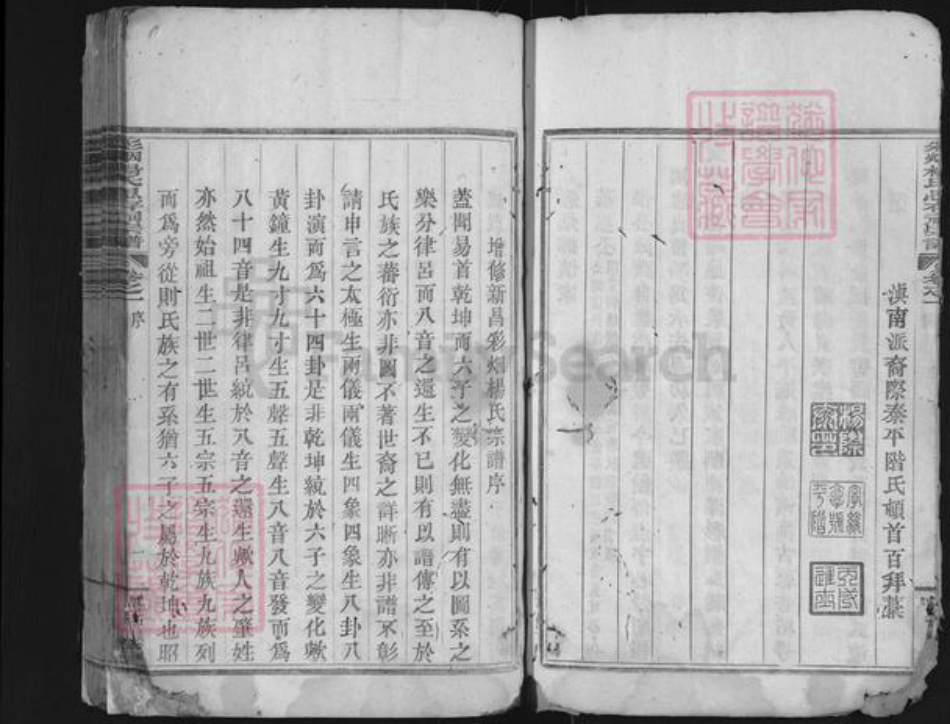 滇南派裔際泰平階氏頓首百拜葉
增修新昌彩烟楊氏宗譜序
蓋聞易首乾坤而六子之變化無盡則有以圖系之
樂分律呂而八音之還生不已則有以譜傳之至於
氏族之蕃衍亦非圖不著世裔之詳晰亦非譜不彰
請申言之太極生兩儀兩儀生四象四象生八卦八
卦演而為六十四卦是非乾坤統於六子之變化歟
黃鐘生九寸九寸生五聲五聲生八音八音發而為
八十四音是非律呂統於八音之還生歟人之肇姓
亦然始祖生二世二世生五宗五宗生九族九族列
而為旁從則氏族之有系猶六子之屬於乾坤也昭
序
FamilySearch